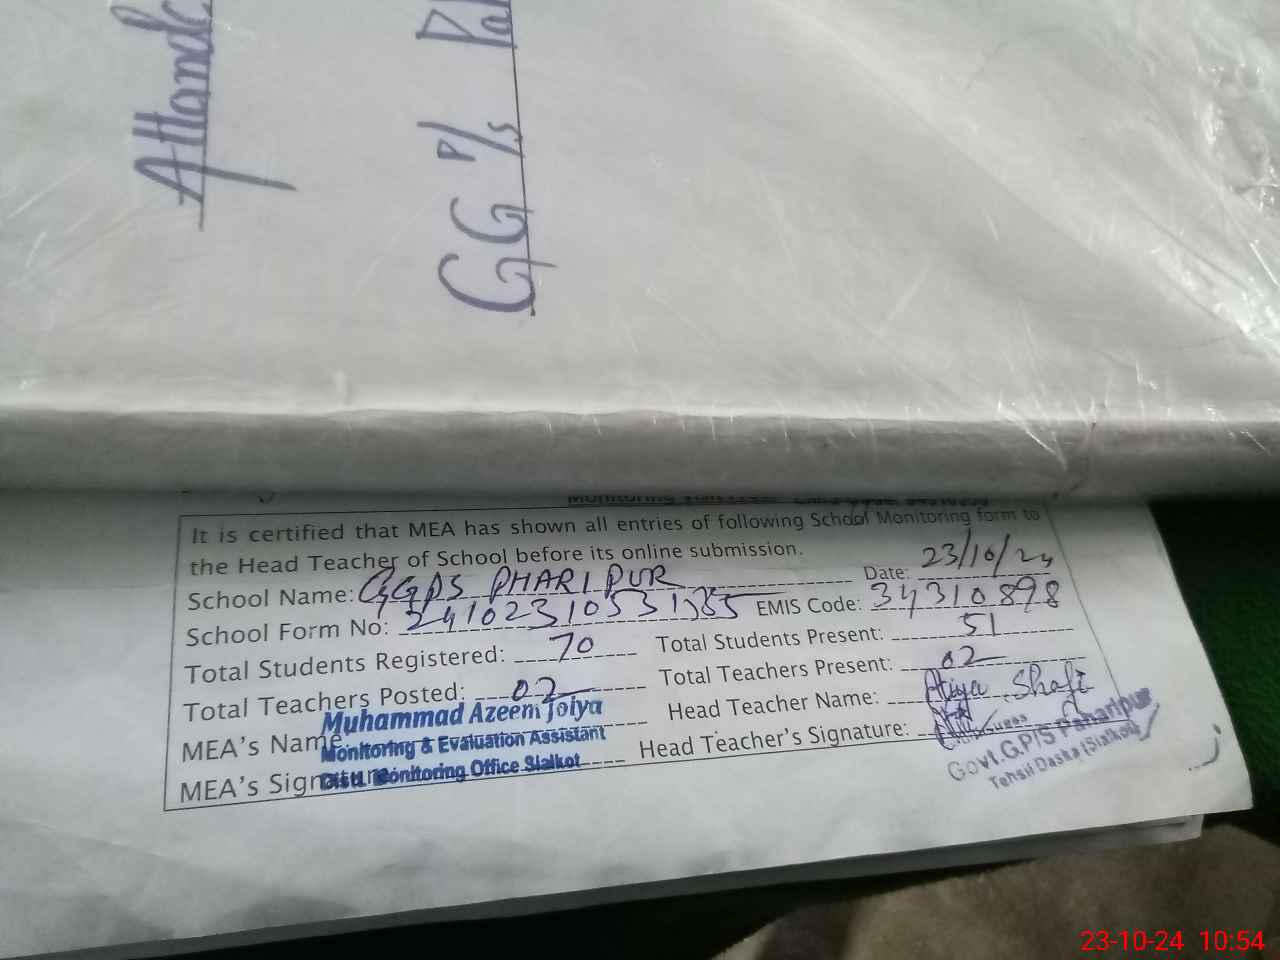 Attand
GG P/S
It is certified that MEA has shown all entries of following School Monitoring form to
the Head Teacher of School before its online submission.
School Name: GGPS PHARIPUR Date: 23/10/24
School Form No: EMIS Code: 34310898
Total Students Registered: 70 Total Students Present: 51
Total Teachers Posted: 02 Total Teachers Present: 02
MEA's Name Muhammad Azeem Joiya Head Teacher Name: Atiya Shafi
Monitoring & Evaluation Assistant
MEA's Signature Distt Monitoring Office Sialkot Head Teacher's Signature:
Govt.G.P/S Paharipur
Tehsil Daska (Sialkot)
23-10-24 10:54